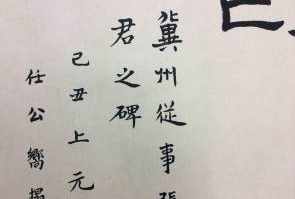 冀州從事張
君之碑
己丑上元
任公嚮揭